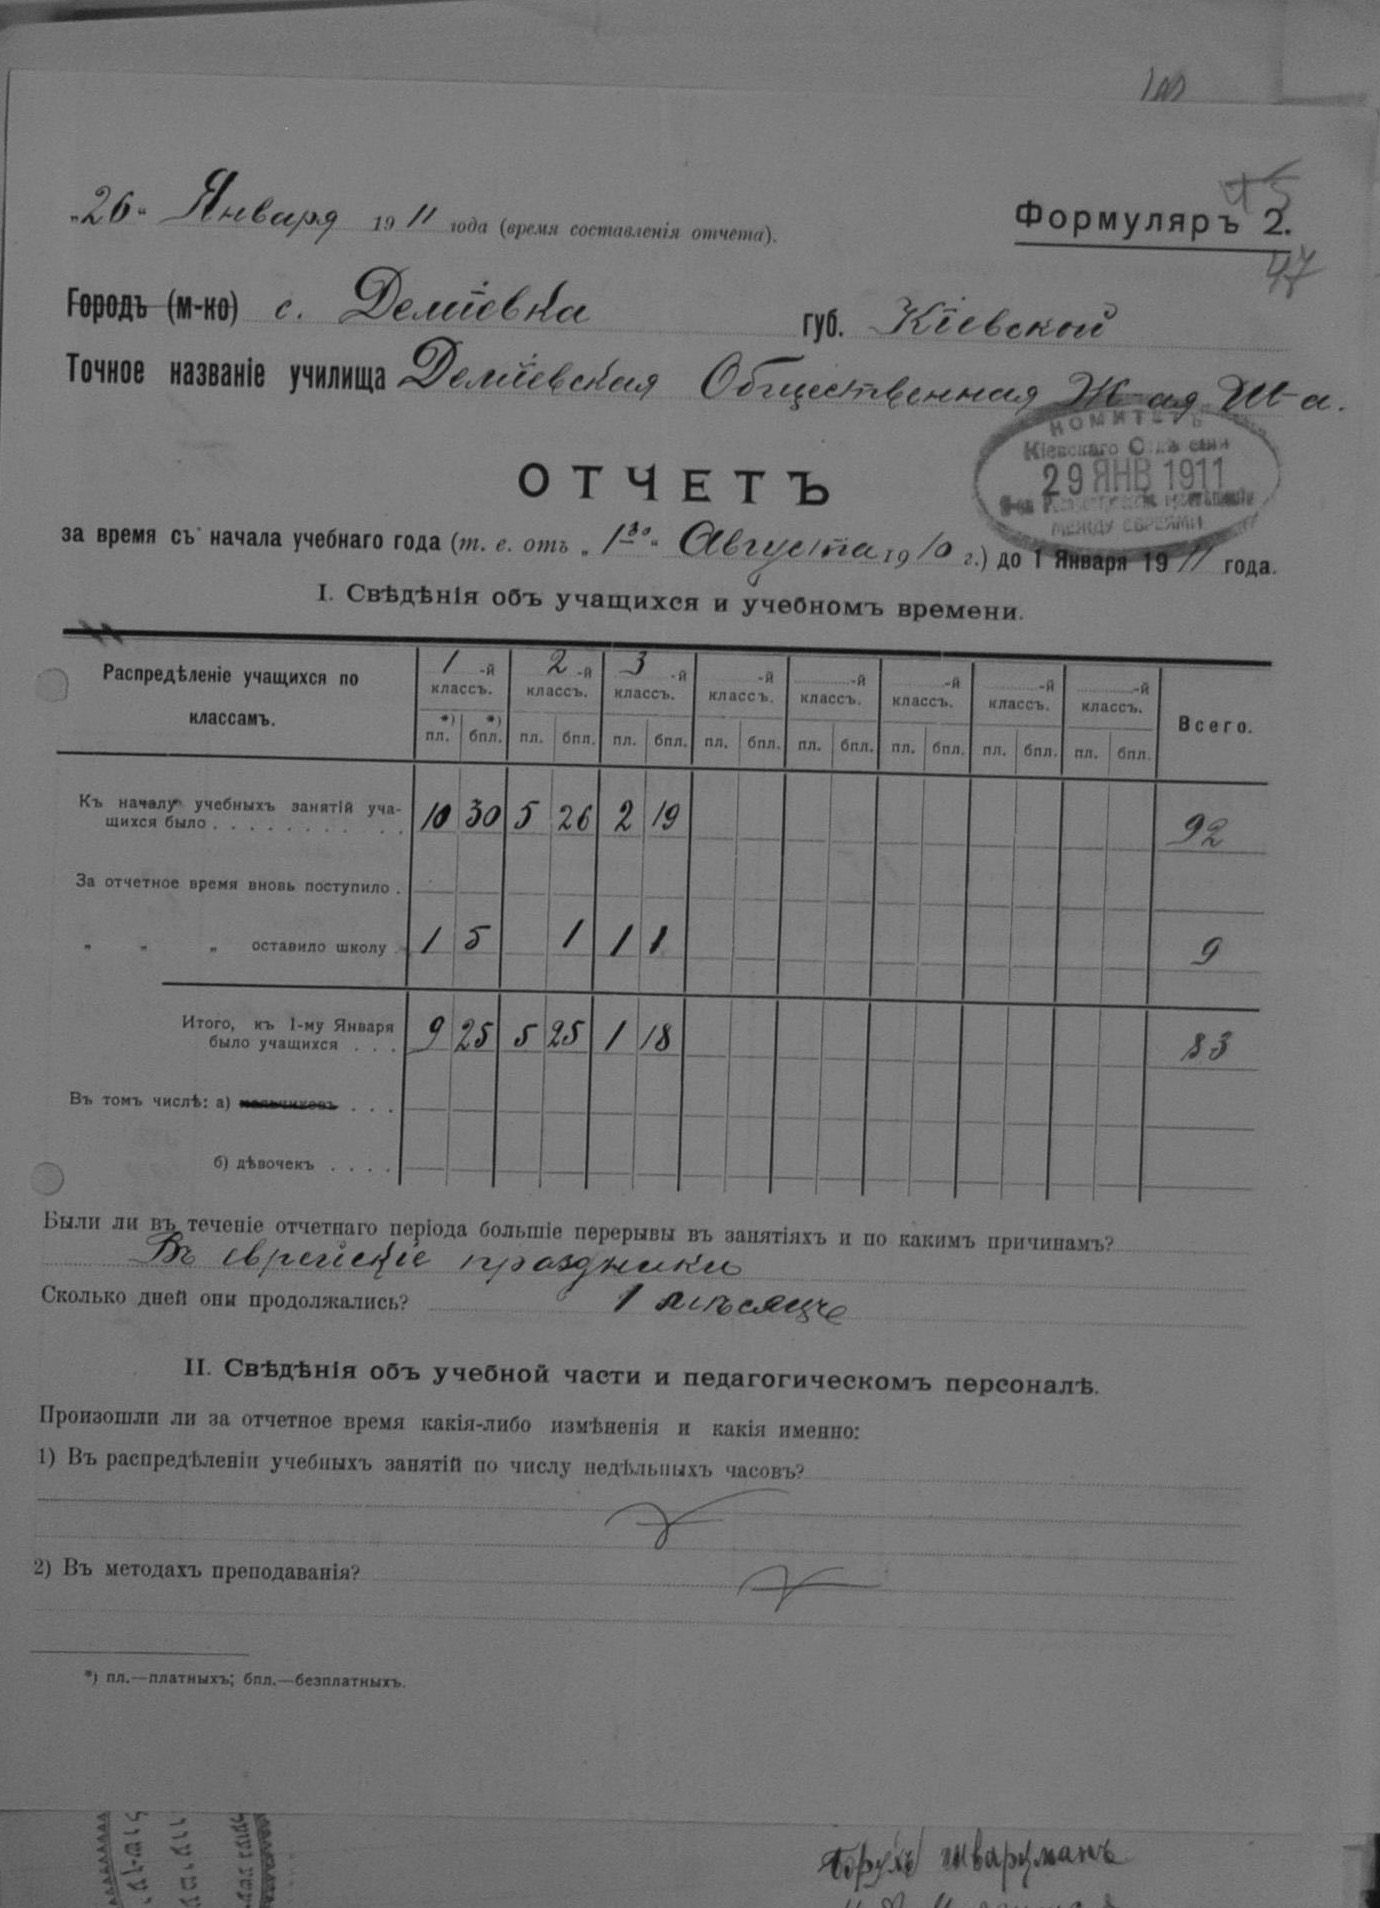 100
"26" Января 1911 года (время составленія отчета).
Формуляръ 2.
45
47
Городъ (м-ко) с. Деміевка губ. Кіевской
Точное названіе училища Деміевская Общественная Ж-ая Шк-а.
КОМИТЕТЪ
Кіевскаго
29 ЯНВ 1911
МЕЖДУ ЕВРЕЯМИ
ОТЧЕТЪ
за время съ начала учебнаго года (т. е. отъ „1го" Августа 1910 г.) до 1 Января 1911 года.
I. Свѣдѣнія объ учащихся и учебномъ времени.
Распредѣленіе учащихся по классамъ. 1 -й классъ. 2 -й классъ. 3 -й классъ. -й классъ. -й классъ. -й классъ. -й классъ. -й классъ. Всего.
*) пл. *) бпл. пл. бпл. пл. бпл. пл. бпл. пл. бпл. пл. бпл. пл. бпл. пл. бпл.
Къ началу учебныхъ занятій уча-
щихся было 10 30 5 26 2 19 92
За отчетное время вновь поступило
" " " оставило школу 1 5 1 1 1 9
Итого, къ 1-му Января
было учащихся 9 25 5 25 1 18 83
Въ томъ числѣ: а) мальчиковъ
б) дѣвочекъ
Были ли въ теченіе отчетнаго періода большіе перерывы въ занятіяхъ и по какимъ причинамъ?
Въ еврейскіе праздники
Сколько дней они продолжались? 1 мѣсяць
II. Свѣдѣнія объ учебной части и педагогическомъ персоналѣ.
Произошли ли за отчетное время какія-либо измѣненія и какія именно:
1) Въ распредѣленіи учебныхъ занятій по числу недѣльныхъ часовъ?
2) Въ методахъ преподаванія?
*) пл.—платныхъ; бпл.—безплатныхъ.
Борухъ Шварцманъ